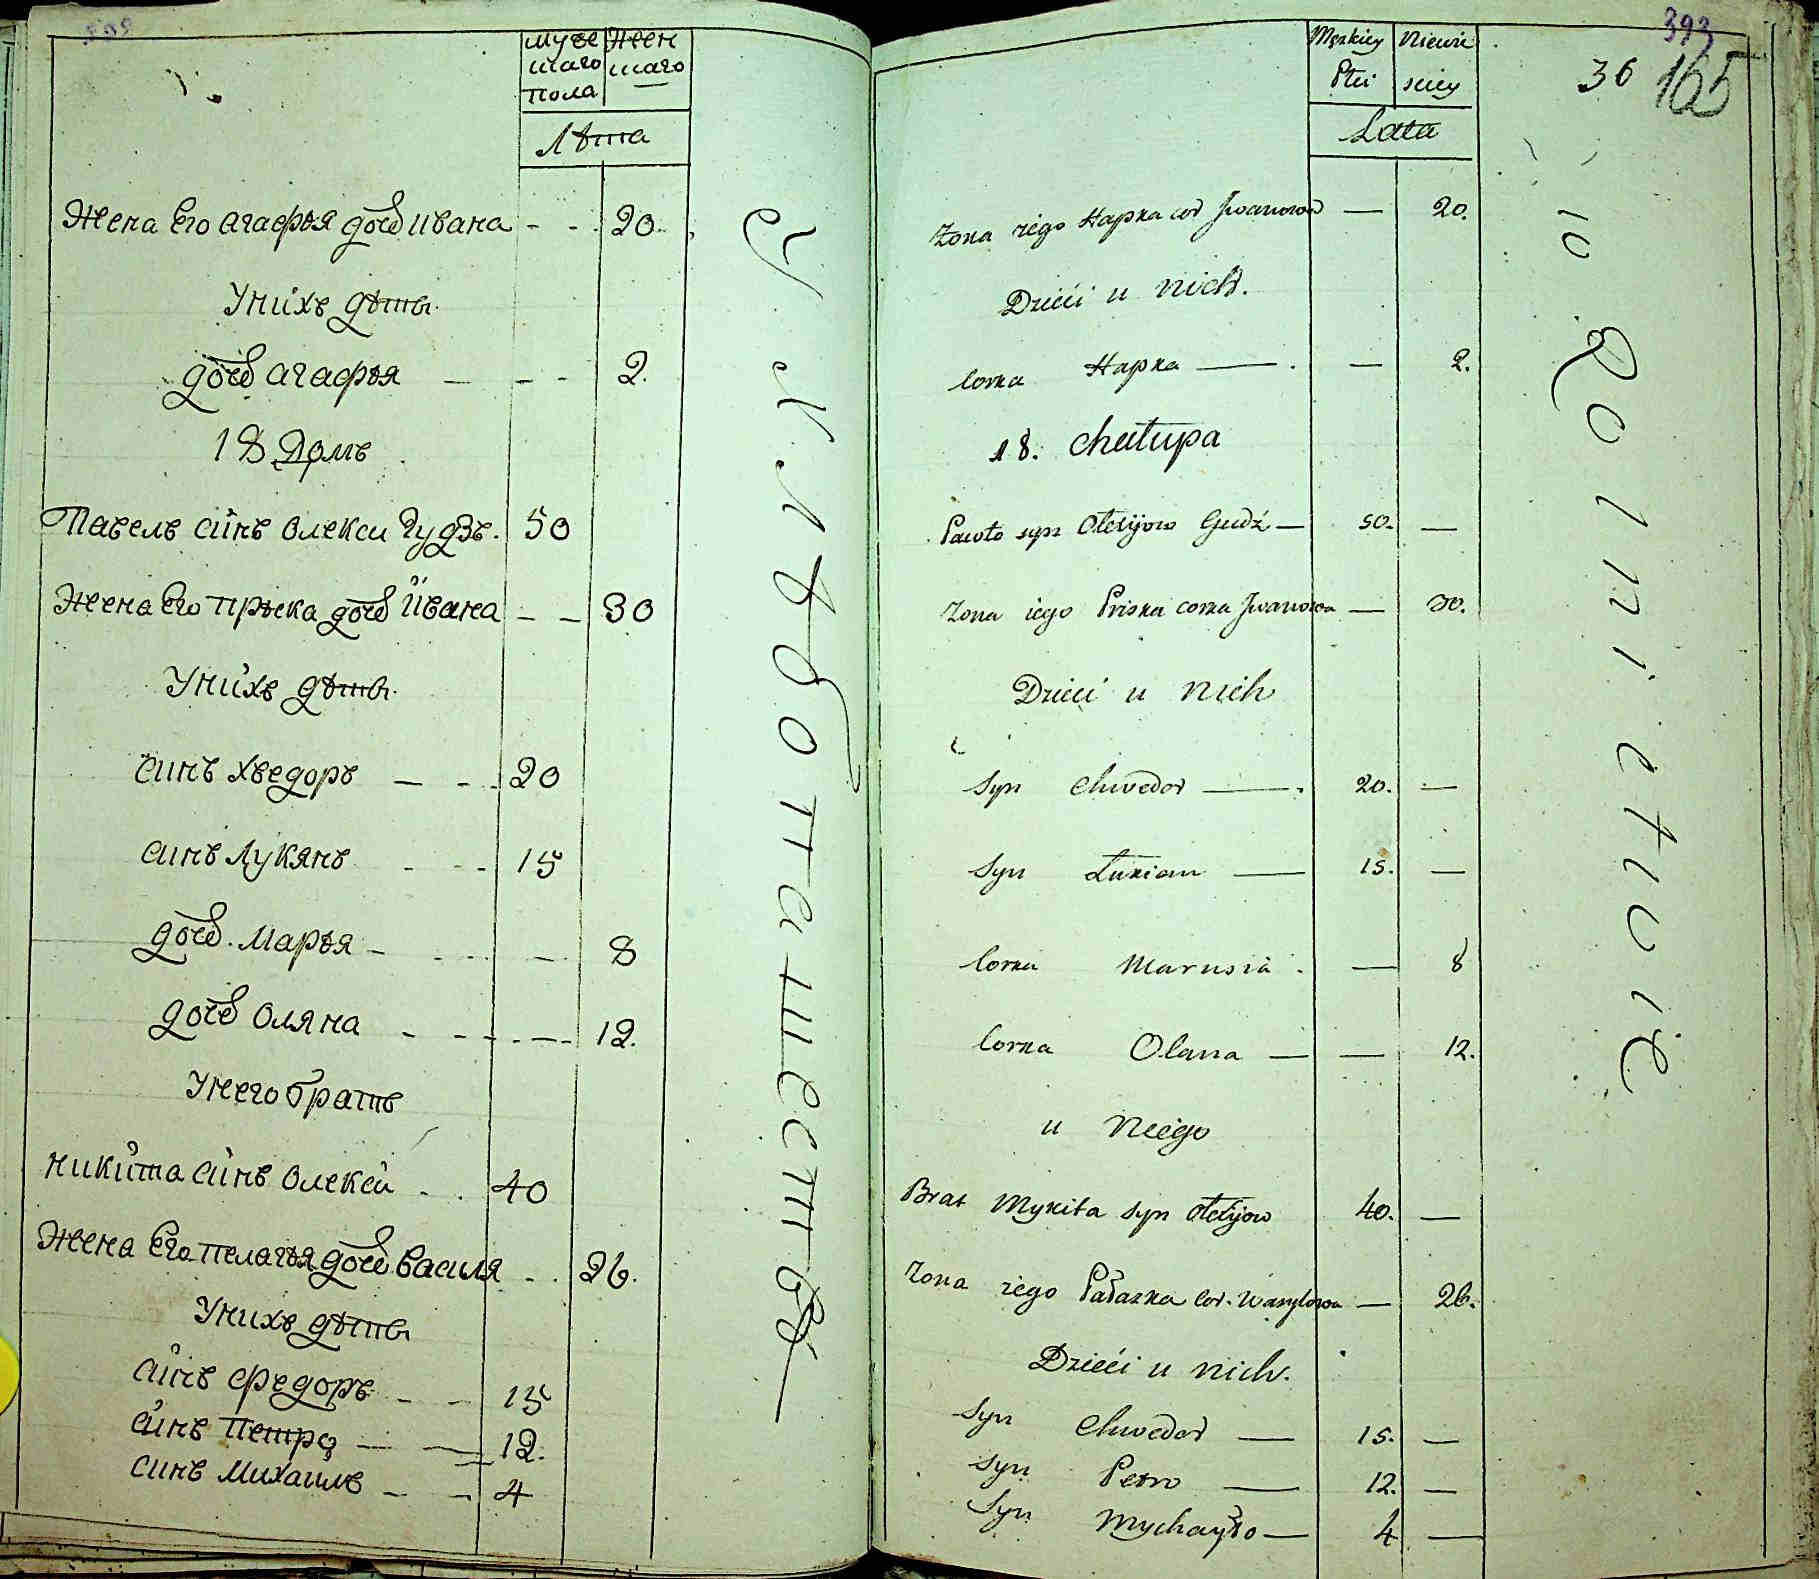 Муже Жен
скаго скаго
пола —
Лѣта
Жена Его Агафѣя дочь Ивана - - 20
Унихъ дѣти
дочь Агафѣя - - - 2.
18 Домъ
Павелъ синъ Олекси Гудзъ. 50
Жена Его Прѣска дочь Ивана - - 30
Унихъ дѣти
синъ Хведоръ - - 20
синъ Лукянъ - - 15
дочь Марѣя - - - 8
дочь Оляна - - - 12.
Унего братъ
Никита синъ Олекси - - 40
Жена Его Пелагѣя дочь Василя - - 26.
Унихъ дѣти
синъ Федоръ - - 15
синъ Петро — — 12.
синъ Михаилъ - - 4
У Хлѣбопашествѣ
393
36 165
Męzkiey Niewie
Płci sciey
Lata
Zona iego Hapka cor Jwanowa — 20.
Dzieci u nich.
Corka Hapka — — 2.
18. Chałupa
Pawło syn Ołexijow Gudź — 50. —
Zona iego Priska corka Jwanowa — 30.
Dzieci u nich
Syn Chwedor — 20. —
Syn Łukian — 15. —
Corka Marusia — 8
Corka Olana — — 12.
u Niego
Brat Mykita syn Ołexijow 40. —
Zona iego Pałazka Cor. Wasylowa — 26.
Dzieci u nich.
Syn Chwedor — 15. —
Syn Petro — 12. —
Syn Mychayło — 4 —
w Rolnictwie